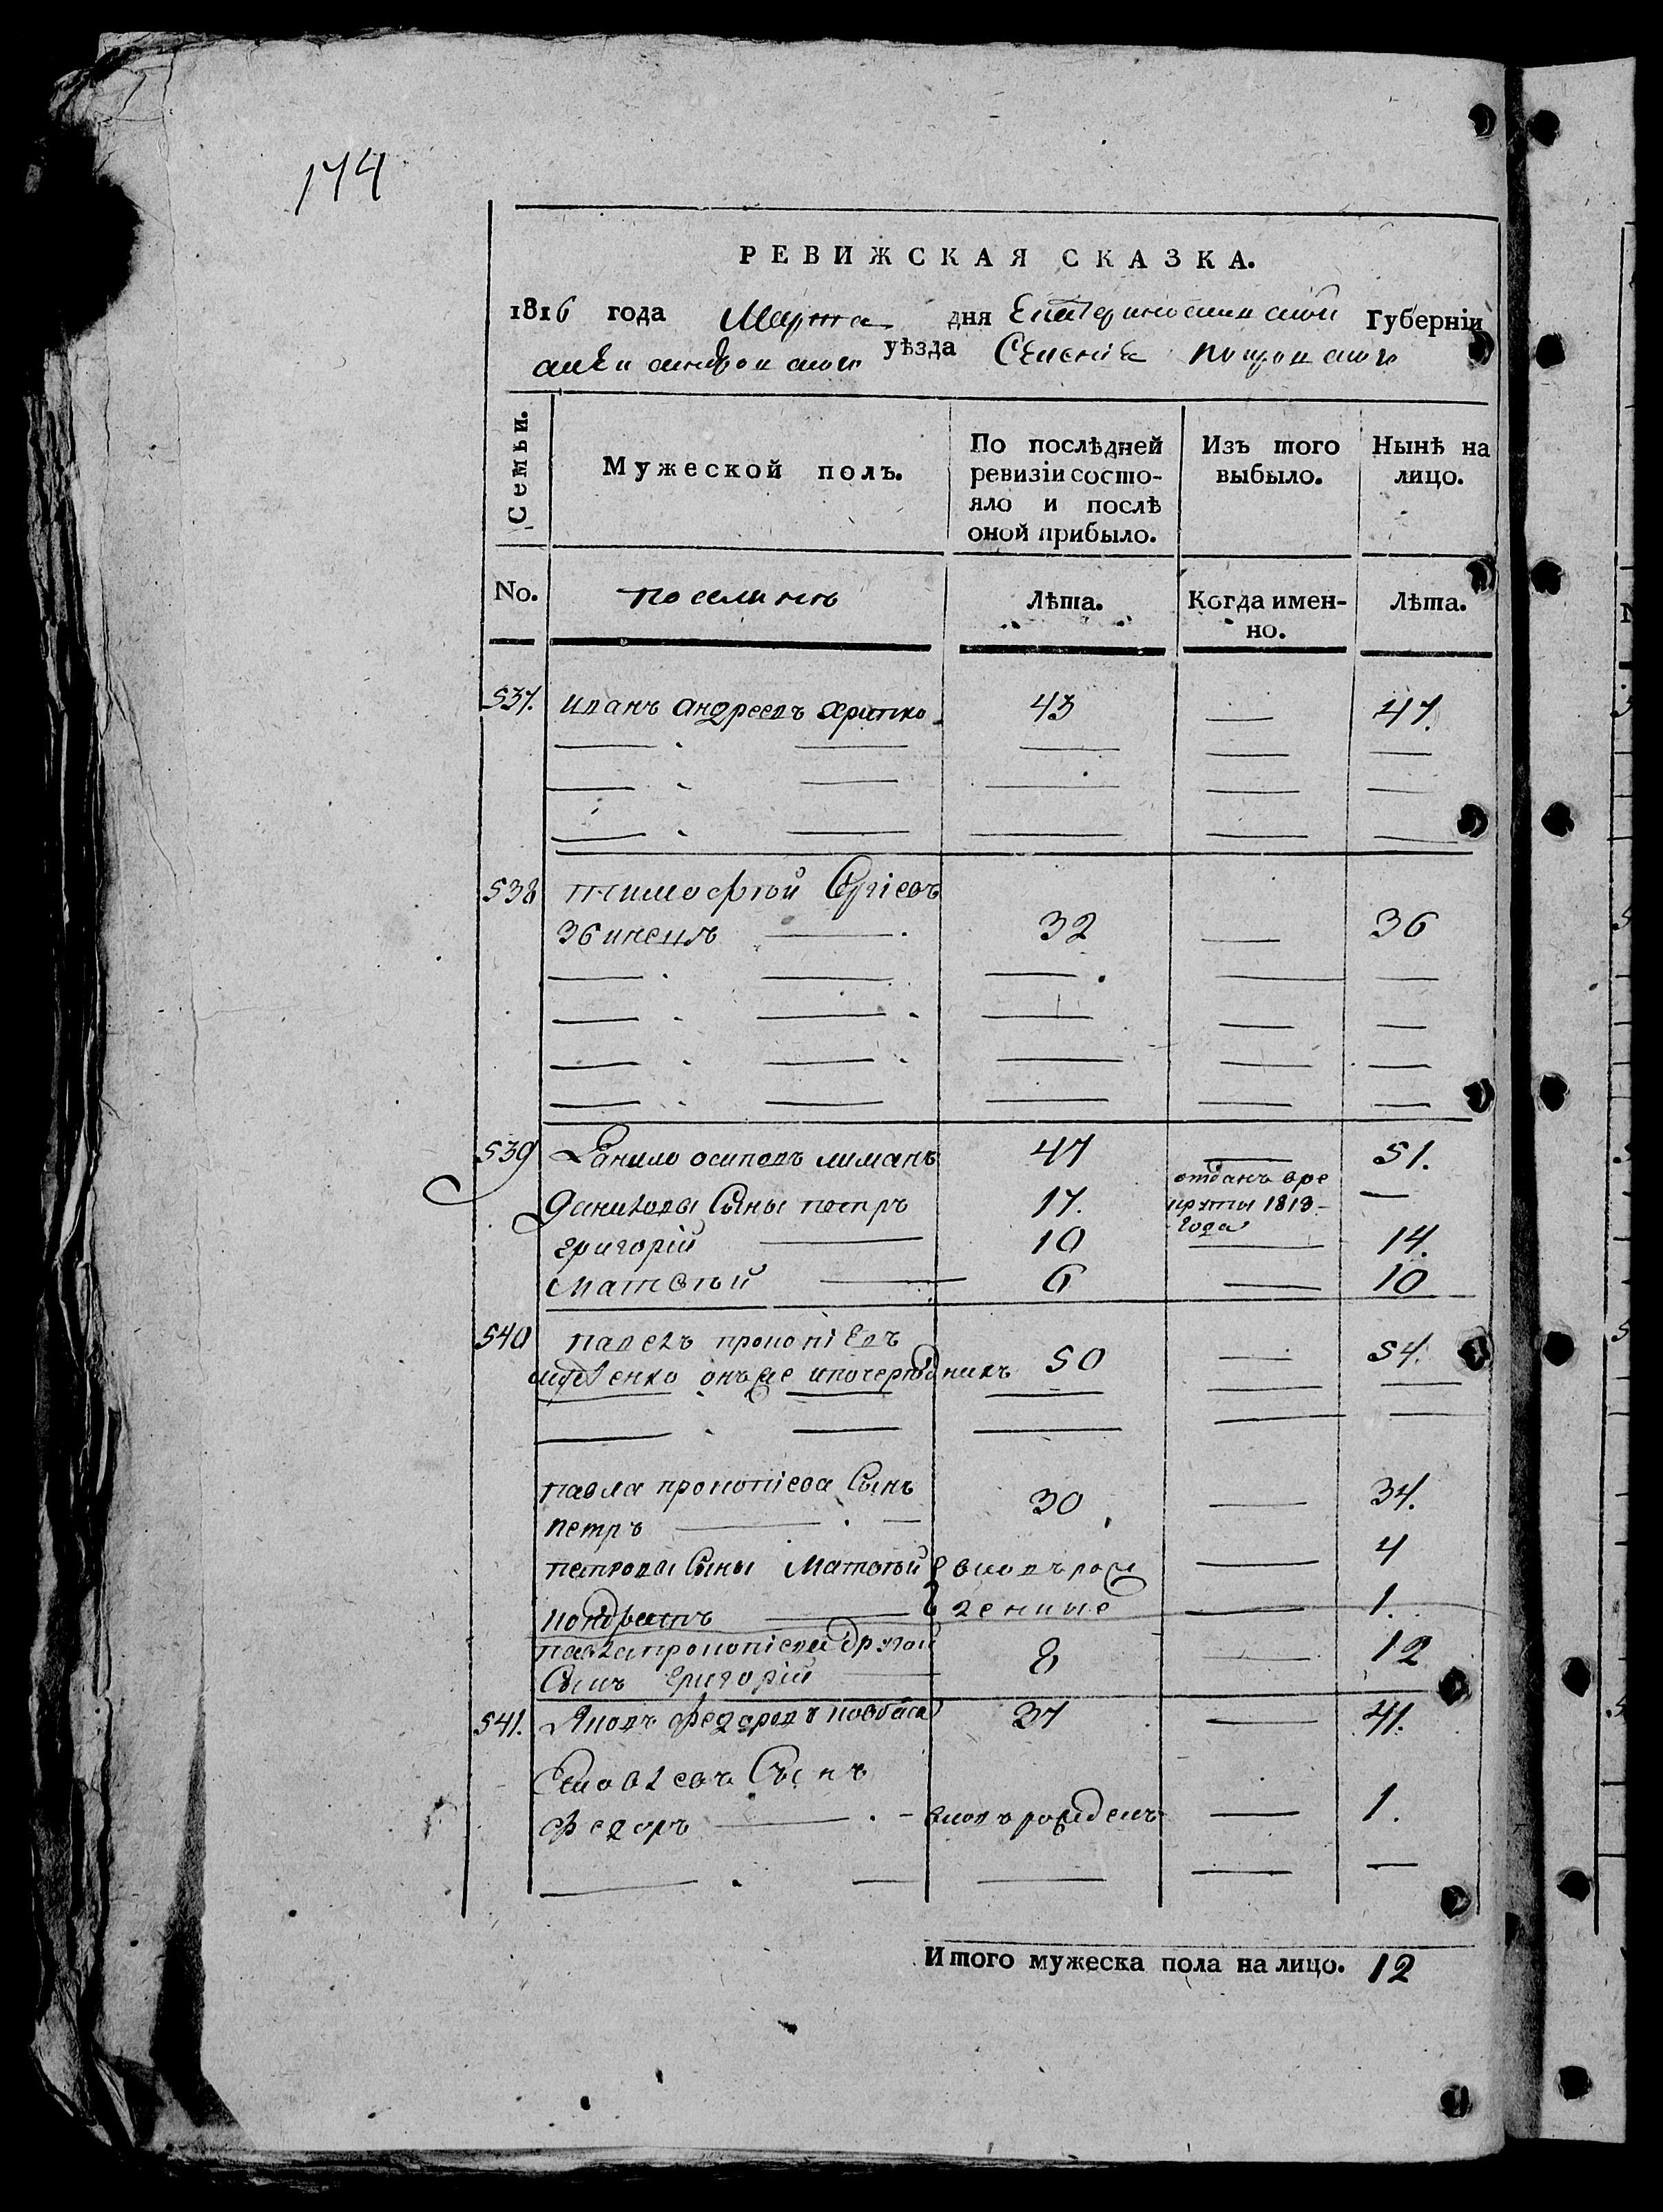 174
РЕВИЖСКАЯ СКАЗКА.
1816 года Марта дня Екатеринославской Губерніи
александровского уѣзда Селенія покровского
Семьи. Мужеской полъ. По послѣдней ревизіи состояло и послѣ оной прибыло. Изъ того выбыло. Нынѣ на лицо.
No. поселянъ Лѣта. Когда именно. Лѣта.
537. иванъ андреевъ хрипко 43 — 47.
538 тимофѣй Сергіевъ
збинецъ — 32 — 36
539 Данило осиповъ лиманъ 47 — 51.
Даниловы Сыны петръ 17. отданъ вре
круты 1813 —
года
григорій — 10 — 14.
матвѣй — 6 — 10
540 павелъ прокопіевъ
онъже ипочередникъ 50 — 54.
павла прокопіева Сынъ
петръ — 30 — 34.
петровы Сыны Матвѣй вновь рож — 4
кондратъ — денные — 1.
павла прокопіева другой
Сынъ григорій — 8 — 12
541. Яковъ федоровъ ковбаса 37 — 41.
Яковлевъ Сынъ
федоръ — вновь рожденъ — 1.
Итого мужеска пола на лицо. 12